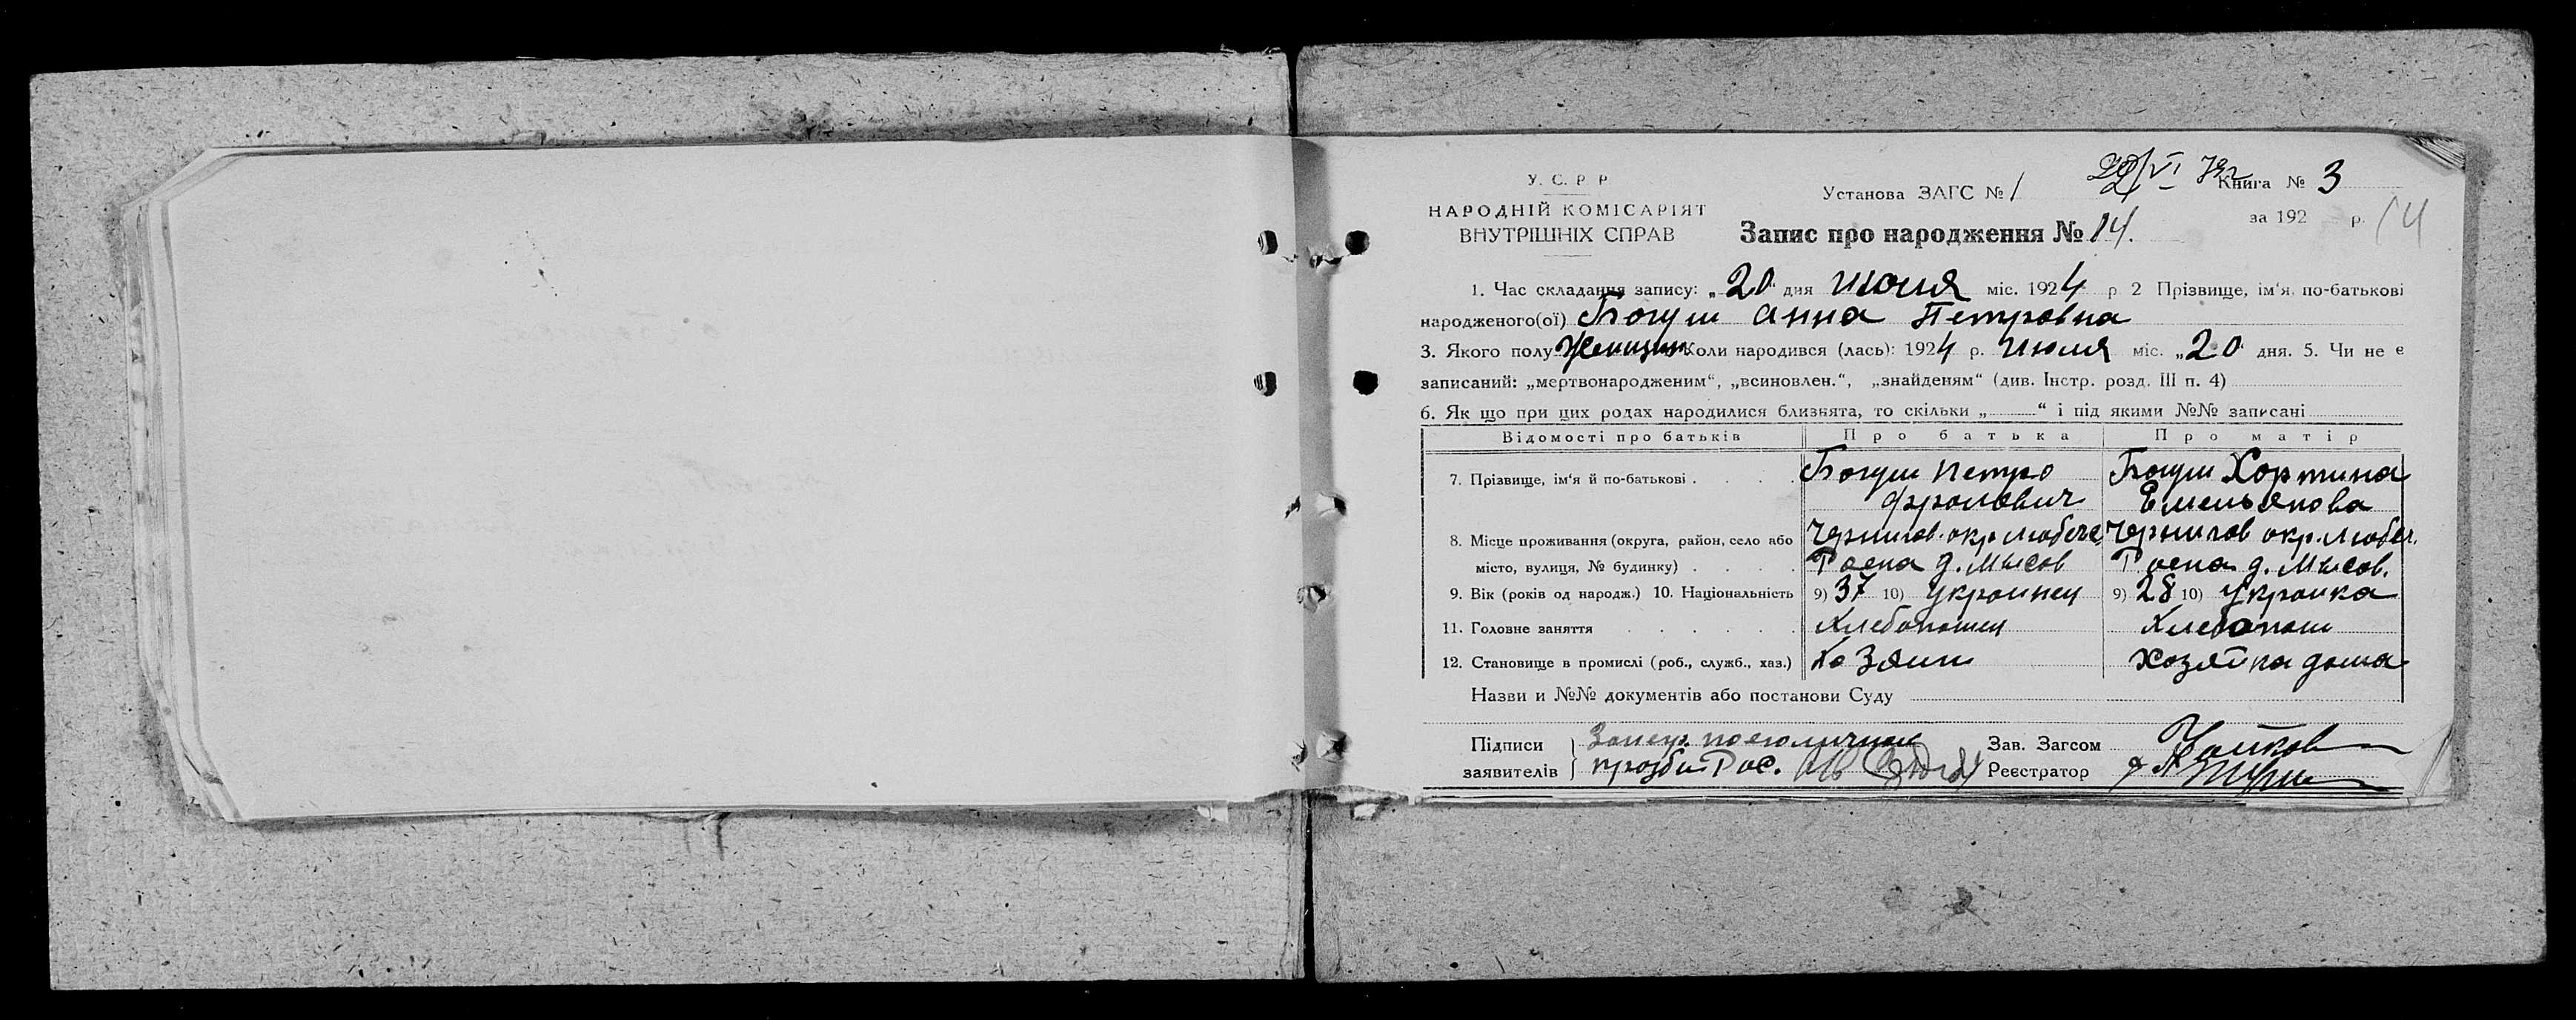 У. С. Р Р
НАРОДНІЙ КОМІСАРІЯТ
ВНУТРІШНІХ СПРАВ
Установа ЗАГС № 1
Книга № 3
за 192 р. 14
Запис про народження № 14.
1. Час складання запису: „20“ дня июля міс. 1924 р 2 Прізвище, ім‘я, по-батькові
народженого(ої) Богуш Анна Петровна
3. Якого полу Женщин Коли народився (лась): 1924 р. июля міс. „20“ дня. 5. Чи не є
записаний: „мертвонародженим“, „всиновлен.“, „знайденям“ (див. Інстр. розд. III п. 4)
6. Як що при цих родах народилися близнята, то скільки „ “ і під якими №№ записані
Відомості про батьків Про батька Про матір
7. Прізвище, ім‘я й по-батькові . . . . Богуш Петро Богуш Хортина
Фролович Емельянова
8. Місце проживання (округа, район, село або Чернигов. окр Любеч. Чернигов окр. Любеч.
місто, вулиця, № будинку) . . . . д. Мысов д. Мысов.
9. Вік (років од народж.) 10. Національність 9) 37 10) Украинец 9) 28 10) Украинка
11. Головне заняття . . . . . . Хлебопашец Хлебопаш
12. Становище в промислі (роб., служб., хаз.) Хозяин хозяйка дома
Назви и №№ документів або постанови Суду
Підписи Зав. Загсом
заявителів Реєстратор